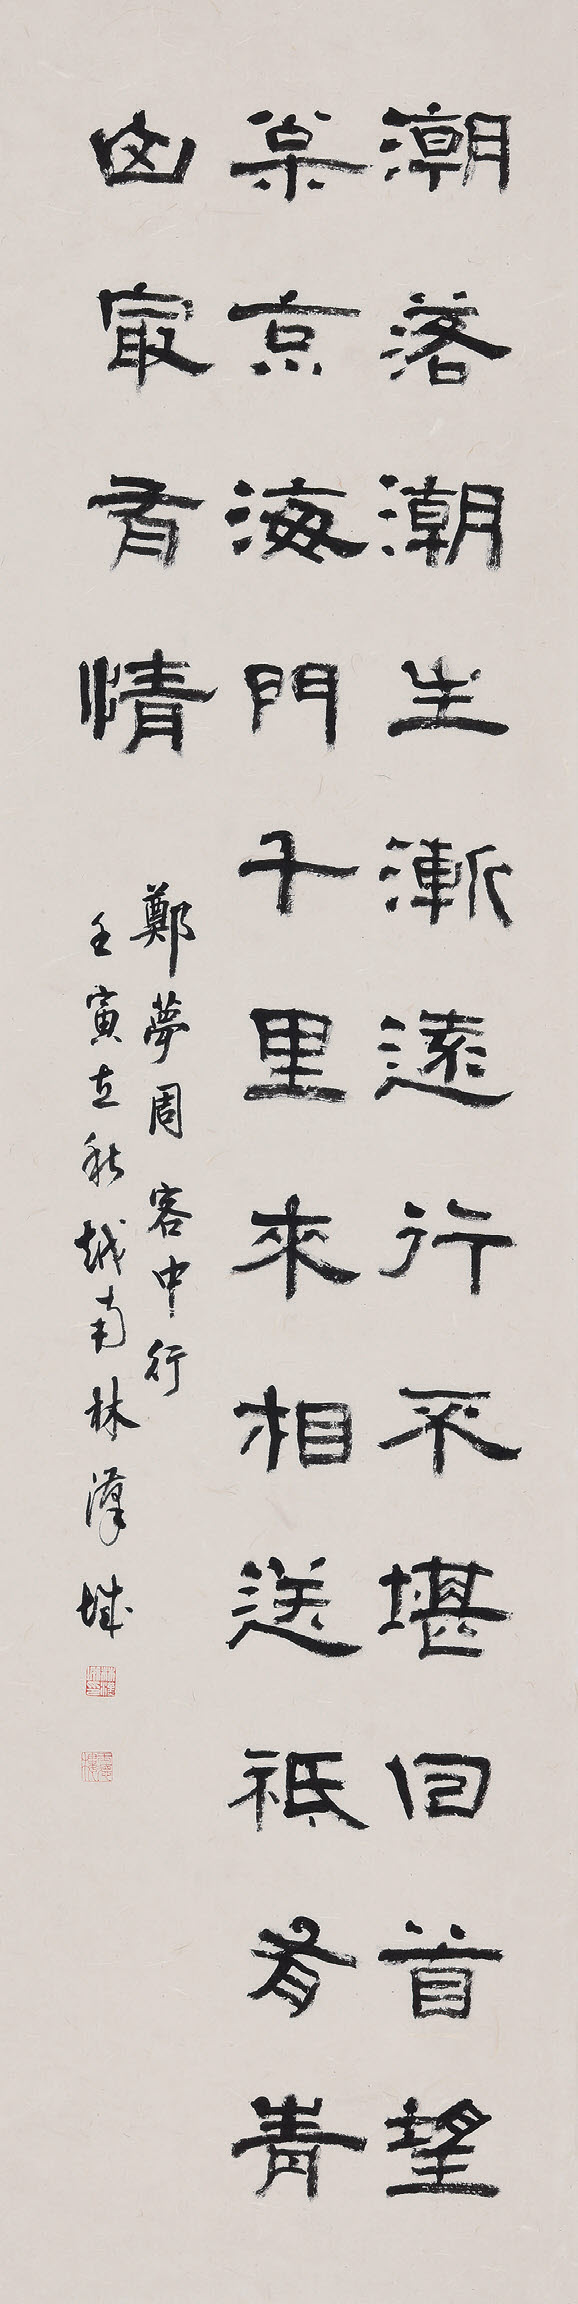 潮落潮生漸遠行不堪回首望
枀京海門千里來相送祗有青
山冣有情
鄭夢周客中行
壬寅立秋越南林漢城